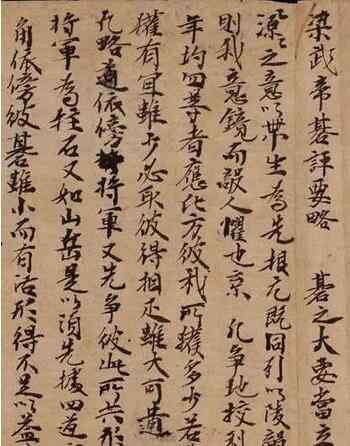 梁武帝碁評要略　碁之大要當立
源之意以帶生為先根元既固引以陵
則我意鏡而敵人懼也京　凡爭地校利
年均四等者應此方彼我所獲多少若
獲有宜雖少必取彼得相疋雖大可遺
凡略道依傍將軍又先爭彼此所共形
將軍為柱石又如山岳是以須先據四道
角依傍彼碁雖小而有活形得不足以益